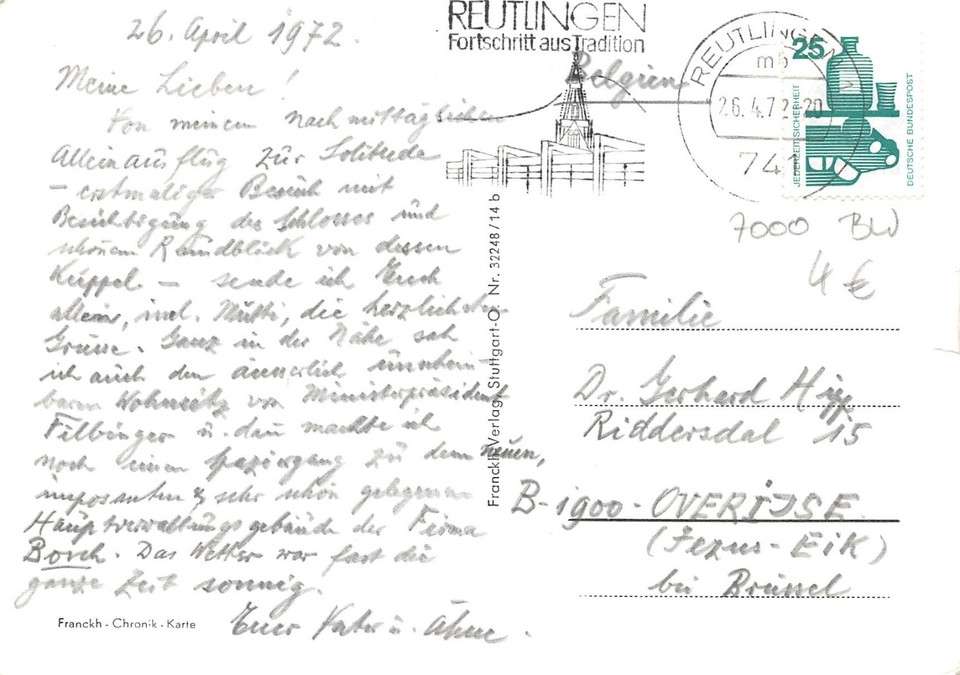 26. April 1972.
Meine Lieben!
Von meinem nachmittäglichen
Alleinausflug zur Solitude
– erstmaliger Besuch mit
Besichtigung des Schlosses und
schönem Rundblick von dessen
Kuppel – sende ich Euch
allen, incl. Mutti, die herzlichsten
Grüsse. Ganz in der Nähe sah
ich auch den äusserlich unschein-
baren Wohnsitz von Ministerpräsident
Filbinger u. dan machte ich
noch einen Spaziergang zu dem neuen,
imposanten & sehr schön gelegenen
Hauptverwaltungsgebäude der Firma
Bosch. Das Wetter war fast die
ganze Zeit sonnig.
Euer Vater u.
Franckh-Chronik-Karte
Franckh-Verlag, Stuttgart-O. Nr. 32248/14 b
REUTLINGEN
Fortschritt aus Tradition
Belgien
REUTLINGEN
mb
26.4.72-20
74
25
JEDERZEIT SICHERHEIT
DEUTSCHE BUNDESPOST
7000 BW
4 €
Familie
Dr. Gerhard
Riddersdal 15
B-1900-OVERIJSE
(Jezus-EiK)
bei Brüssel